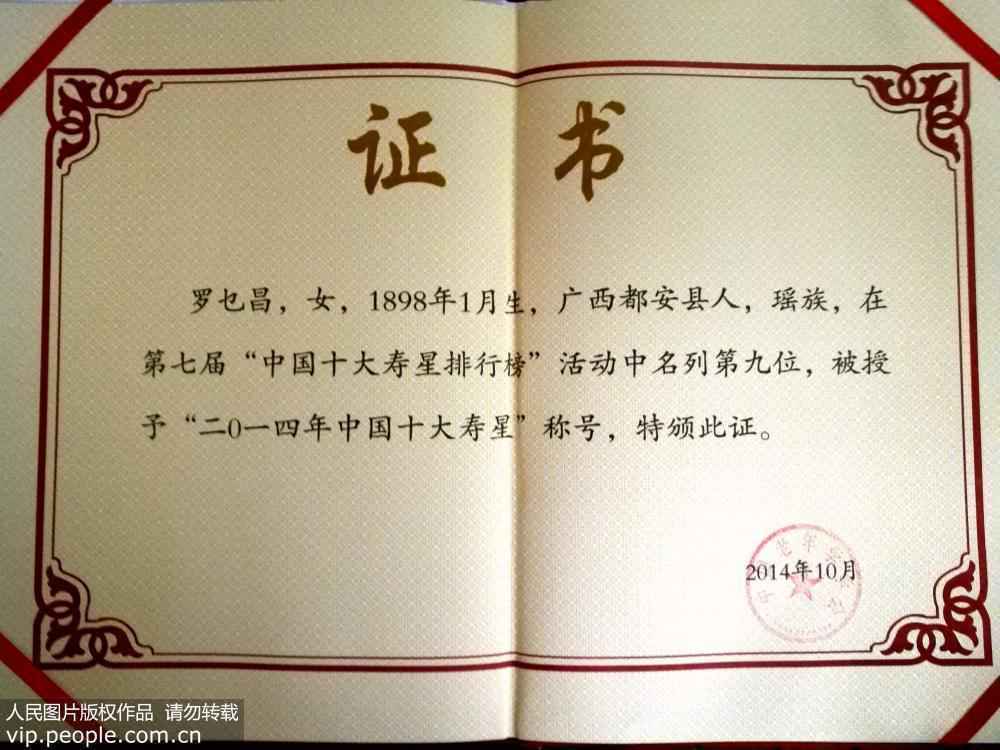 证 书
罗乜昌，女，1898年1月生，广西都安县人，瑶族，在
第七届“中国十大寿星排行榜”活动中名列第九位，被授
予“二0一四年中国十大寿星”称号，特颁此证。
2014年10月
人民图片版权作品 请勿转载
vip.people.com.cn